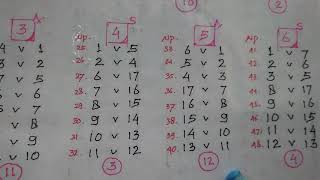 10 2
3 4 S 5 A 6 S
v 1 NP. 25. 1 v 5 NP. 33. 6 v 1 NP. 41. 1 v 7
v 2 26. 2 v 4 34. 5 v 2 42. 2 v 6
v 5 27. 6 v 17 35. 4 v 3 43. 3 v 5
v 6 28. 7 v 16 36. 7 v 17 44. 8 v 17
v 7 29. 8 v 15 37. 16 v 8 45. 9 v 16
v 8 30. 9 v 14 38. 15 v 9 46. 10 v 15
v 9 31. 10 v 13 39. 14 v 10 47. 11 v 14
v 10 32. 11 v 12 40. 13 v 11 48. 12 v 13
11 3 12 4